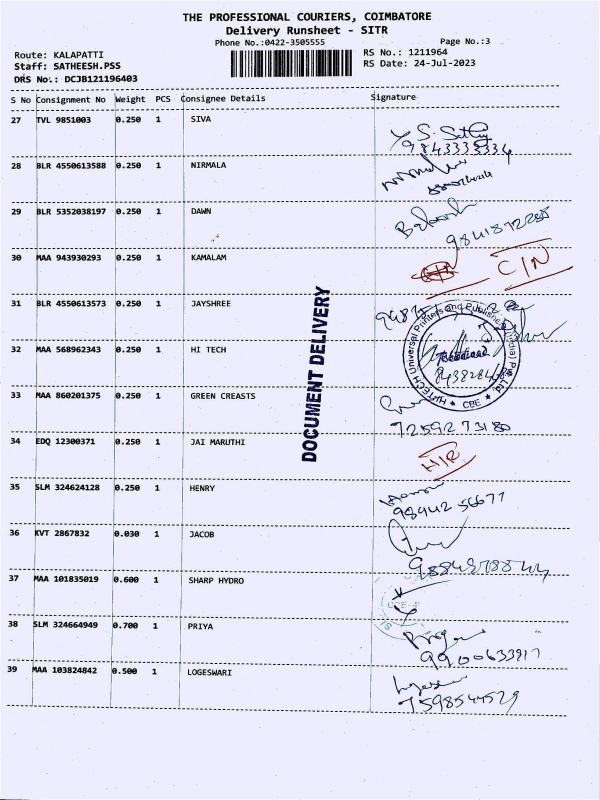 THE PROFESSIONAL COURIERS, COIMBATORE
Delivery Runsheet - SITR
Phone No.:0422-3505555
Page No.:3
Route: KALAPATTI
RS No.: 1211964
Staff: SATHEESH.PSS
RS Date: 24-Jul-2023
DRS No.: DCJB121196403
S No Consignment No Weight PCS Consignee Details Signature
27 TVL 9851003 0.250 1 SIVA
9843333334
28 BLR 4550613588 0.250 1 NIRMALA
29 BLR 5352038197 0.250 1 DAWN
30 MAA 943930293 0.250 1 KAMALAM
C/N
31 BLR 4550613573 0.250 1 JAYSHREE
32 MAA 568962343 0.250 1 HI TECH
HI-TECH Universal Printers and Publishers (India) Pvt. Ltd. ★ CBE ★
33 MAA 860201375 0.250 1 GREEN CREASTS
7259273180
34 EDQ 12300371 0.250 1 JAI MARUTHI
DOCUMENT DELIVERY
35 SLM 324624128 0.250 1 HENRY
98942 56677
36 KVT 2867832 0.030 1 JACOB
37 MAA 101835019 0.600 1 SHARP HYDRO
38 SLM 324664949 0.700 1 PRIYA
9900633917
39 MAA 103824842 0.500 1 LOGESWARI
7598544529